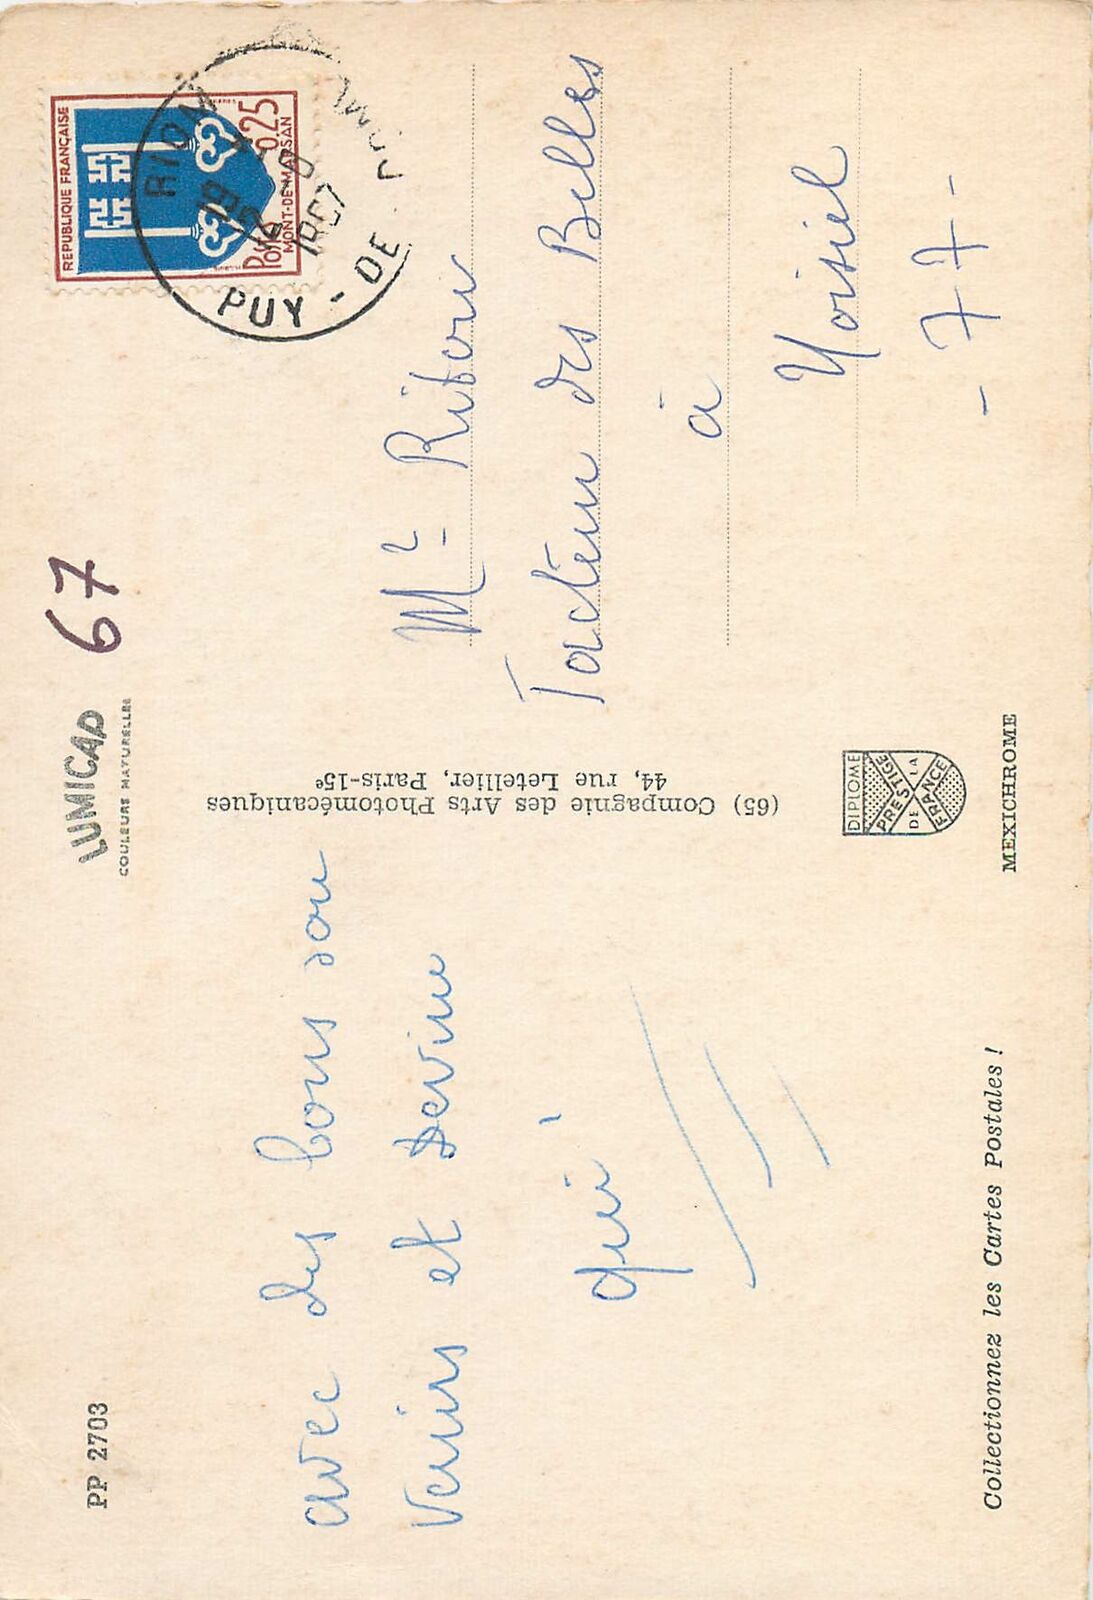 PP 2703
avec des bons sou
venirs et devine
qui
Collectionnez les Cartes Postales !
LUMICAP
COULEURS NATURELLES
67
(65) Compagnie des Arts Photomécaniques
44, rue Letellier, Paris-15e
DIPLOME
PRESTIGE
DE LA
FRANCE
MEXICHROME
REPUBLIQUE FRANÇAISE
0,25
Postes
MONT-DE-MARSAN
RIOM
1967
PUY-DE-DOME
Mr Ritou
Facteur des Belles
à
Noisiel
-77-